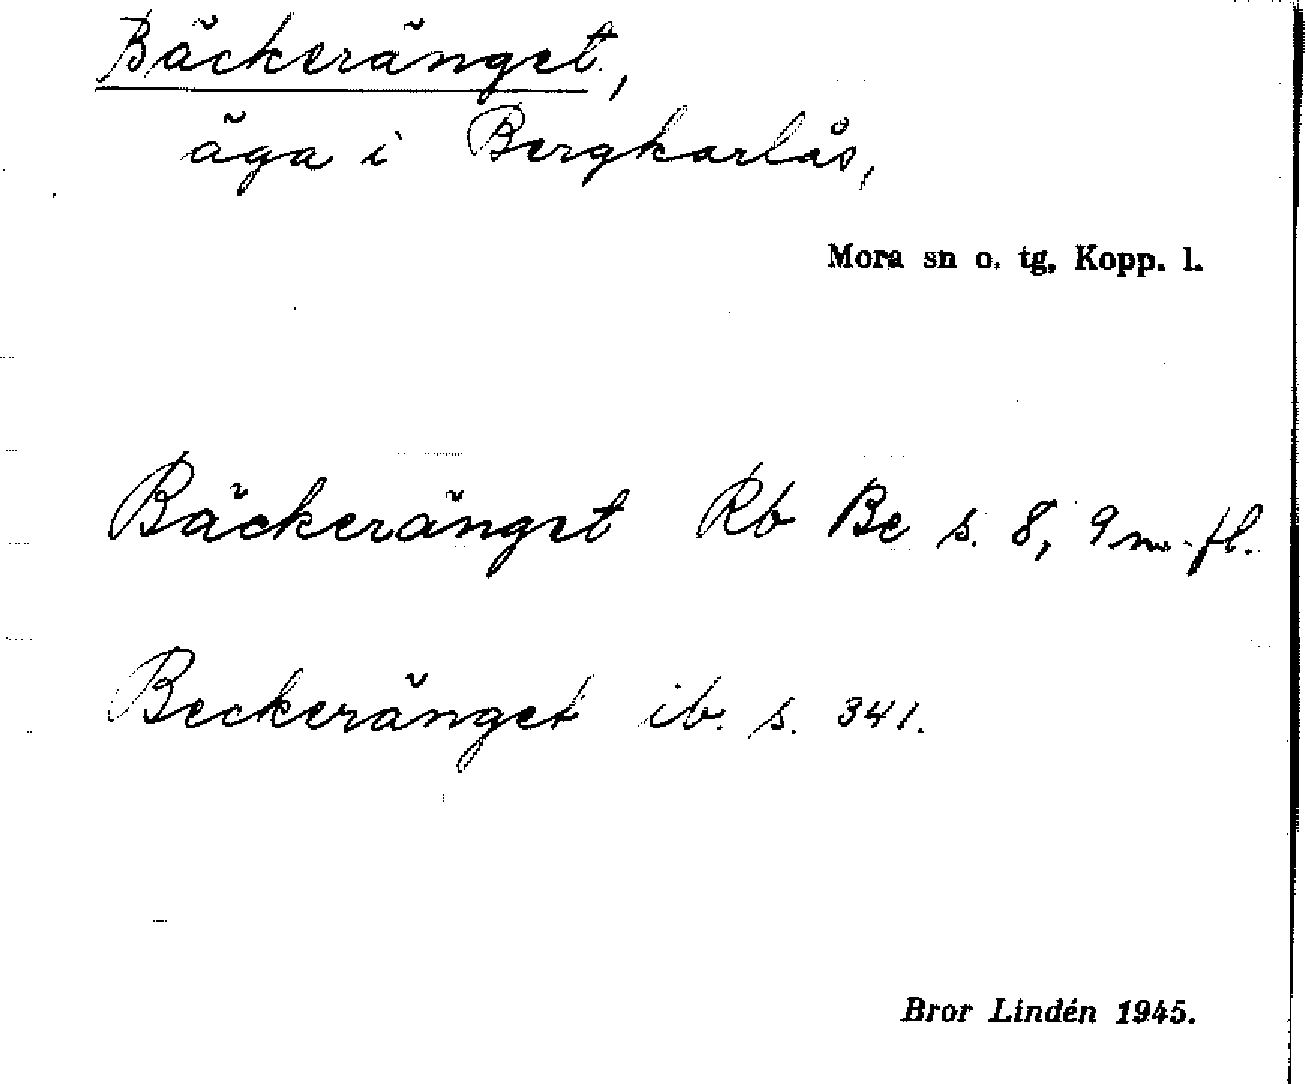 Bäckeränget,
äga i Bergkarlås,
Mora sn o. tg, Kopp. l.
Bäckeränget Rb Be s. 8, 9 m. fl.
Beckeränget ib. s. 341.
Bror Lindén 1945.